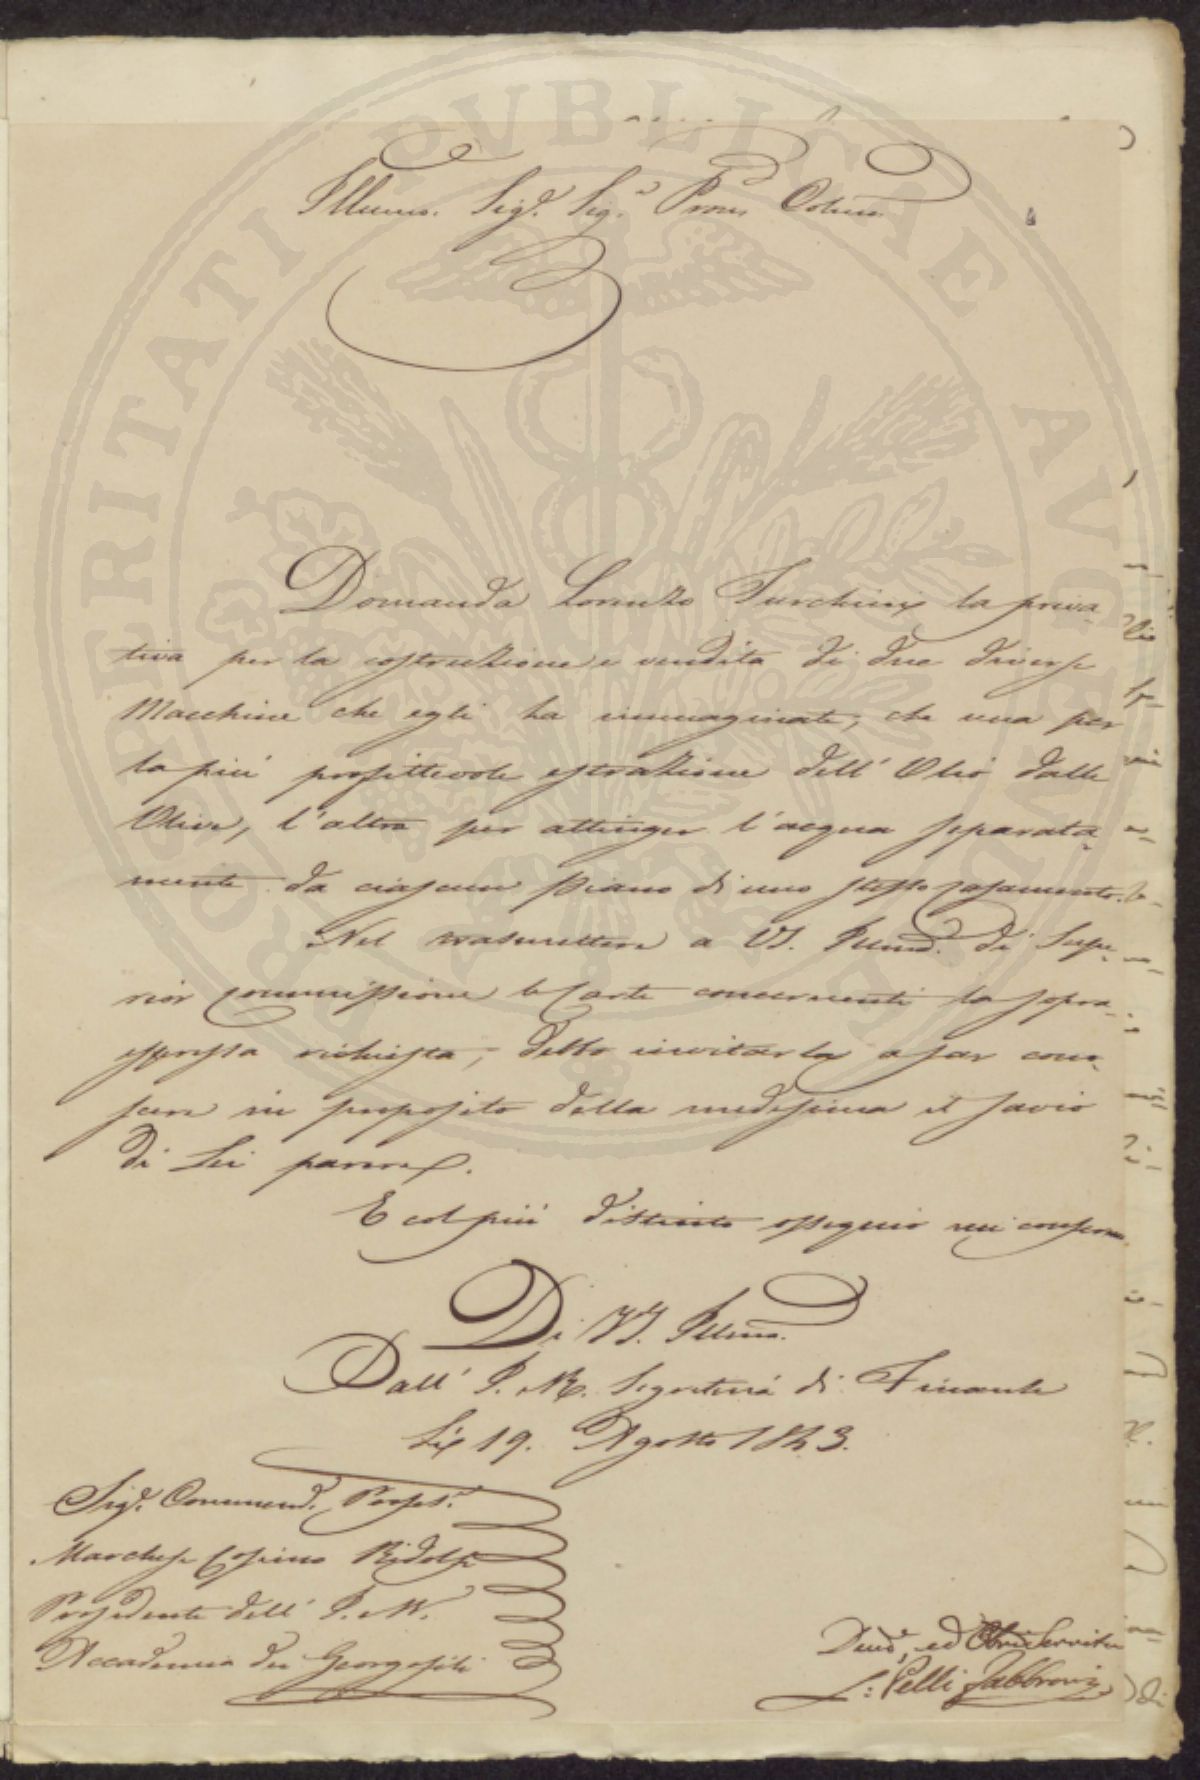 Illmo. Sigr. Sigr. Prone Colmo.
Domanda Lorenzo Turchini la priva-
tiva per la costruzione e vendita di due diverse
Macchine che egli ha immaginate, che una per
la più profittevole estrazione dell' Olio dalle
Olive, l'altra per attinger l'acqua separata-
mente da ciascun piano di uno stesso casamento.
Nel trasmettere a VS. Illma. di Supe-
rior commissione le Carte concernenti la sopra-
espressa richiesta, debbo invitarla a far cono-
scere in proposito della medesima il savio
di Lei parere.
E col più distinto ossequio mi confermo
Di VS. Illma.
Dall' I. e R. Segreteria di Finanze
Li 19. Agosto 1843.
Sigr. Commend. Profes.
Marchese Cosimo Ridolfi
Presidente dell' I. e R.
Accademia dei Georgofili
Devo. ed Obbmo Servitore
L: Pelli Fabbroni
PROSPERITATI PVBLICAE AVGENDAE